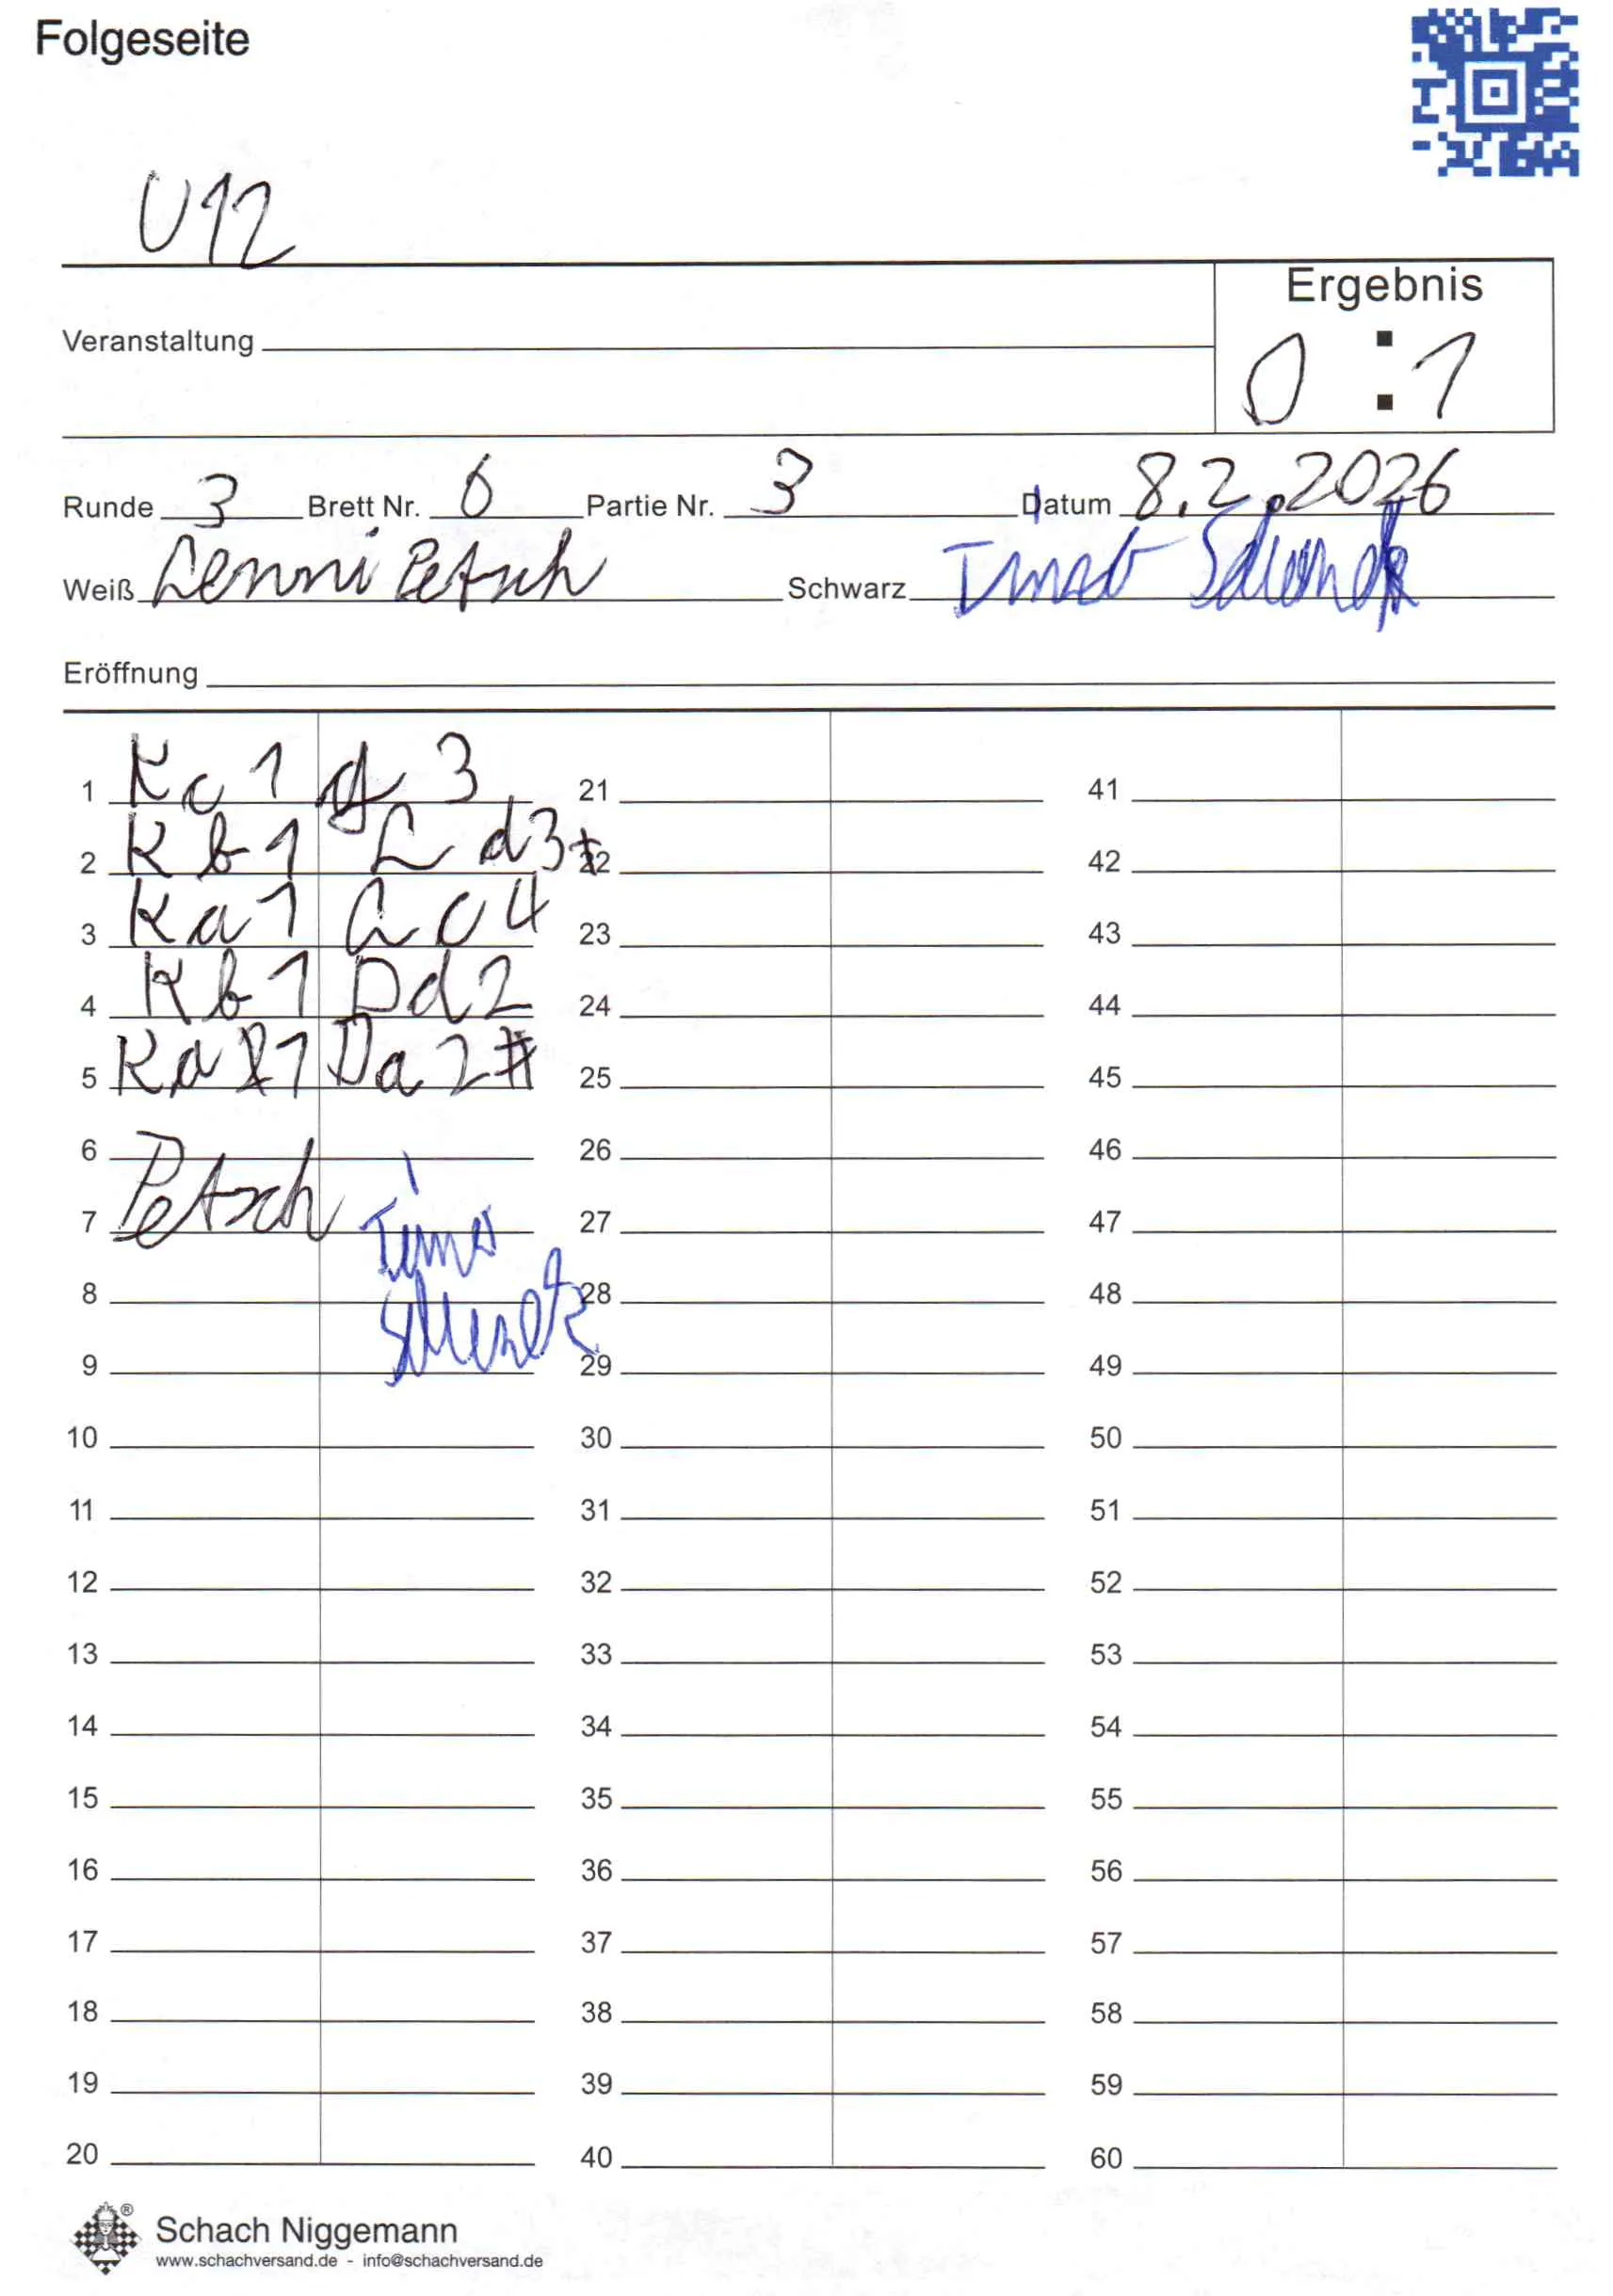 Folgeseite
U12
Ergebnis
Veranstaltung
0 : 1
Runde 3 Brett Nr. 6 Partie Nr. 3 Datum 8.2.2026
Weiß Lenni Petsch Schwarz
Eröffnung
1 Kc1 g3 21 41
2 Kb1 Ld3+ 22 42
3 Ka1 Lc4 23 43
4 Kb1 Dd2 24 44
5 Ka1 Da2# 25 45
6 26 46
7 Petsch Timo 27 47
8 28 48
9 29 49
10 30 50
11 31 51
12 32 52
13 33 53
14 34 54
15 35 55
16 36 56
17 37 57
18 38 58
19 39 59
20 40 60
® Schach Niggemann
www.schachversand.de - info@schachversand.de